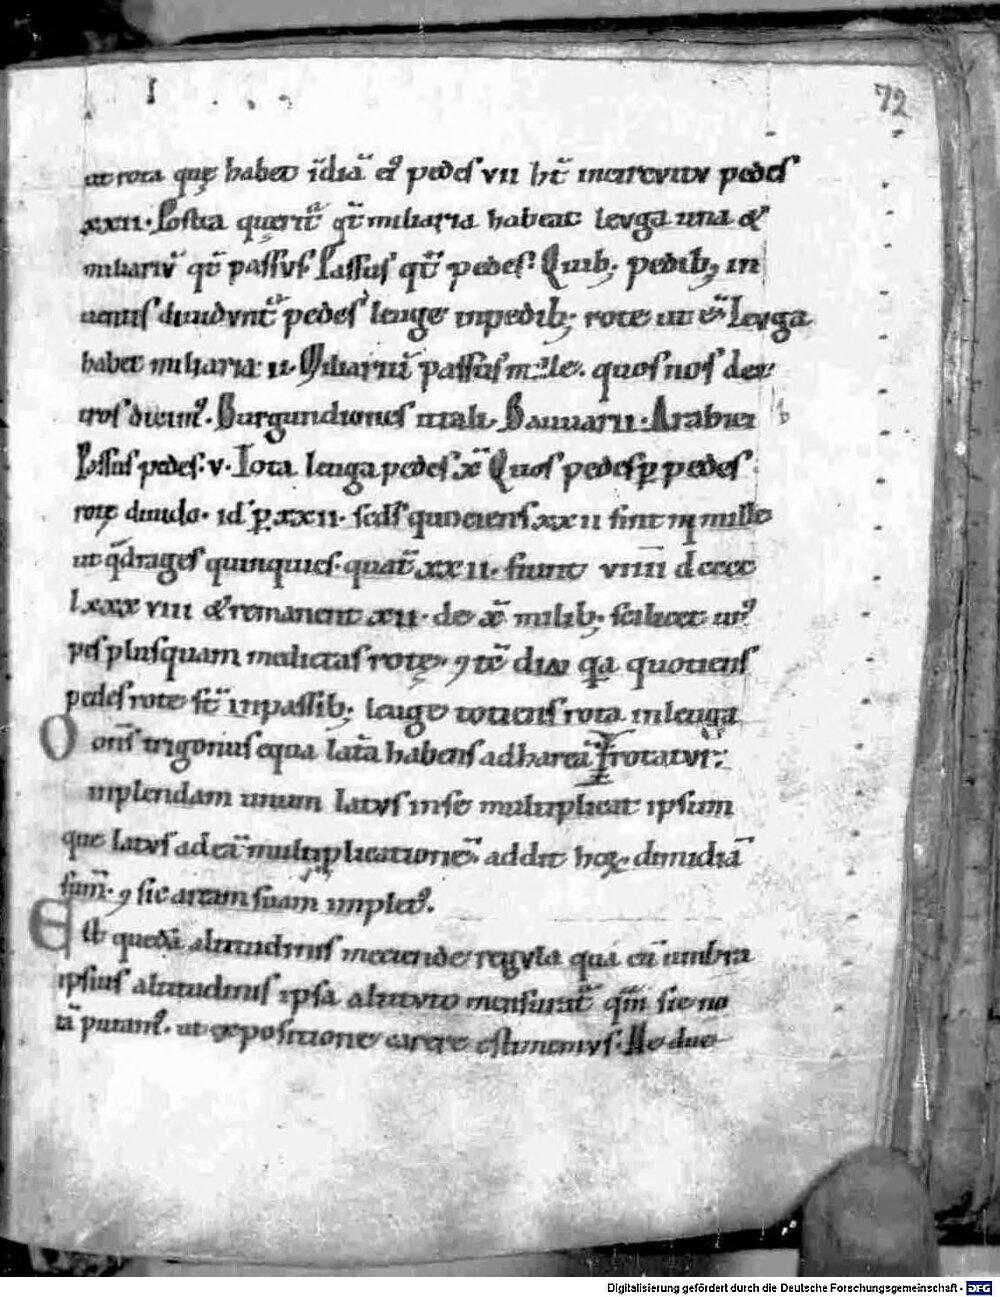 72
ut rota quę habet ī diā ei᷒ pedes vii hr̄ in circuitu pedes
xxii. Postea querit̄ qt̄ miliaria habeat levga una &
miliariū qt̄ passus. Passus qt̄ pedes. Quib; pedib; in
pedes leuge in pedib; rote ut ē Levga
habet miliaria ii. Miliariū passus mille. quos nos dex
tros dicim᷒. Burgundiones itali. Bauuarii. Arabici
Passus pedes. v. Tota leuga pedes x̄ Quos pedes ꝑ pedes
rotę diuido. id. ꝑ xxii. quociens xxii sint in mille
ut q̄drages quinquies. quat̄ xxii. fiunt viiii dcccc
lxxx viii & remanent xii. de x̄ milib; scilicet un᷒
pes plusquam medietas rotę. quotiens
pedes rote st̄ in passib; leuge totiens rota in leuga
rotatur.
Oms̄ trigonus equa latā habens ad hareā
inplendam unum latus in se multiplicat ipsum
que latus ad eā multiplicationē addit hoꝝ dimidiā
sum̄. ⁊ sic aream suam implet.
Est quedā altitudinis meciende regula qua cū umbra
ipsius altitudinis ipsa altitudo mensurat̄ qm̄ sic no
tā putam᷒. ut expositione carere estimemus. He due
Digitalisierung gefördert durch die Deutsche Forschungsgemeinschaft - DFG